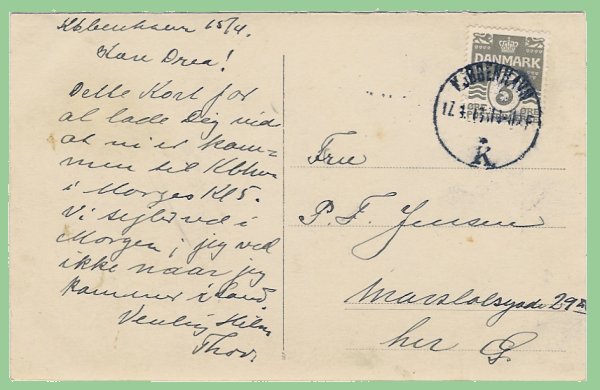 København 15/4.
Kære Drea!
Dette Kort for
at lade Dig vide
at vi er kom-
men til Kbhvn
i Morges Kl 5.
Vi sejler ud i
Morgen, jeg ved
ikke naar jeg
kommer i Land
Venlig Hilsn
Thor
DANMARK
KJØBENHAVN
K
Frue
P. F. Jensen
29
her